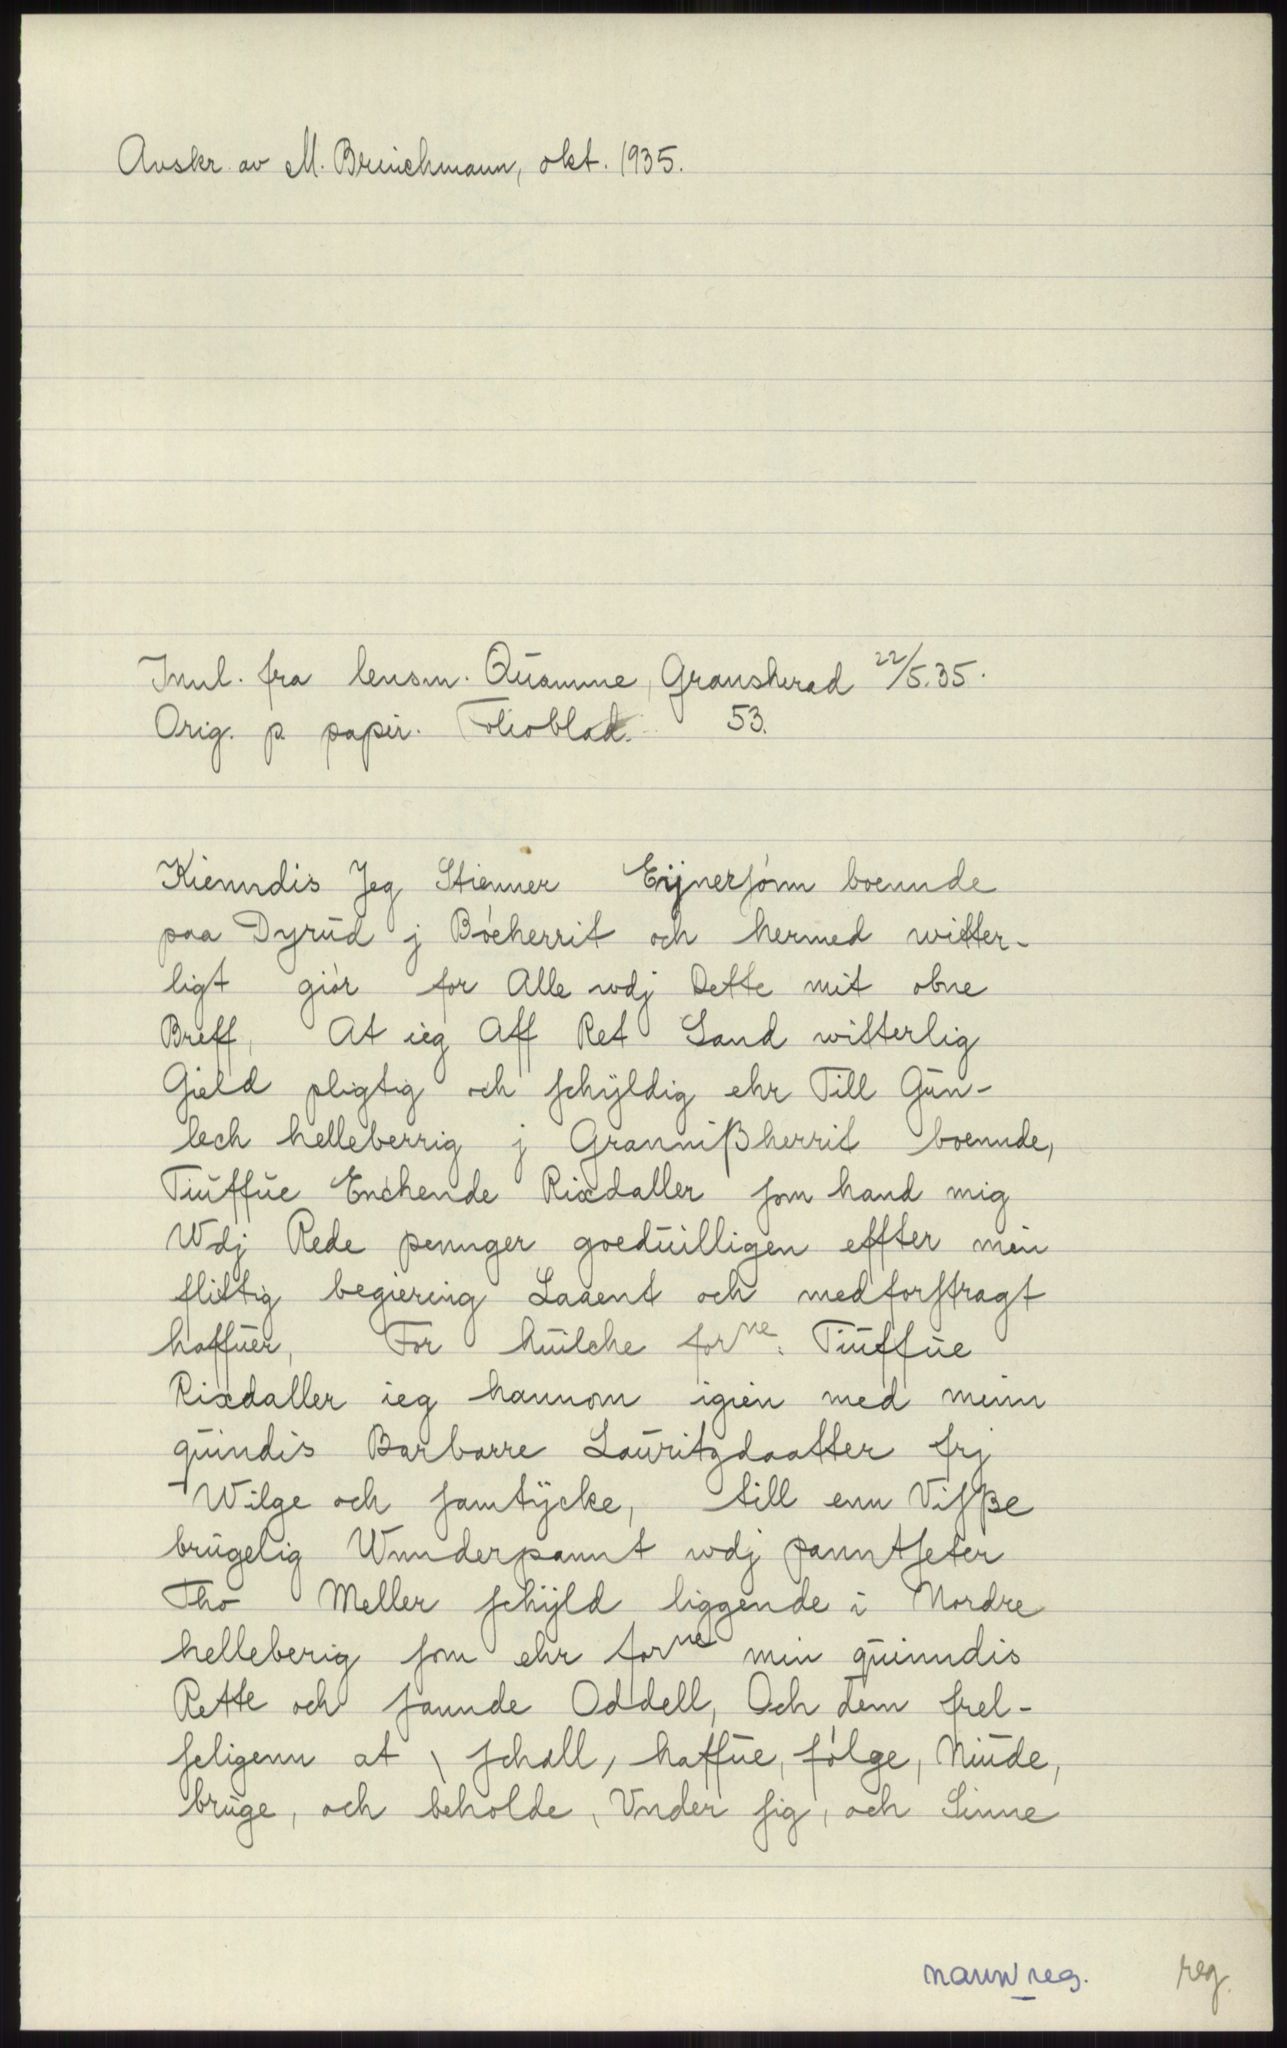 Avskr. av M. Brinchmann, okt. 1935.
Innl. fra lensm. Qūamme, Gransherad 22/5.35.
Orig. p. papir. Folioblad. 53.
Kienndis Jeg Stienner Eijnersónn boennde
paa Dyrūd j Bócherrit och hermed witter-
ligt giór for Alle wdj Dette mit obne
Breff, At ieg Aff Ret Sand witterlig
Gield pligtig och schÿldig ehr Till Gūn-
lech helleberrig j Granniβherrit boennde,
Tiūffūe Enchende Rixdaller som hand mig
Wdj Rede pennger goedūilligen effter min
flittig begiering Laaent och medforstragt
haffūer, For hūilche forne. Tiūffūe
Rixdaller ieg hannom igien med minn
qūindis Barbarre Laūritzdaatter frj
Wilge och samtÿcke, till enn Visβe
brūgelig Wnnderpannt wdj panntseter
Tho Meller schÿld liggende i Nordre
helleberig som ehr forne min qūinndis
Rette och sannde Oddell, Och dem frel-
seligenn at \ schall, haffūe, fólge, Niūde,
brūge, och beholde, Vnder sig, och Sinne
navnreg. reg.